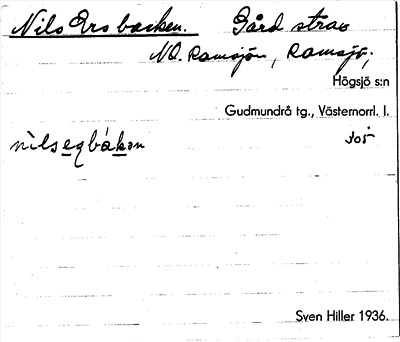 Nils Ers backen. Gård strax
NO. Ramsjön, Ramsjö;
Högsjö s:n
Gudmundrå tg., Västernorrl. l.
nilsezbákan
Sven Hiller 1936.